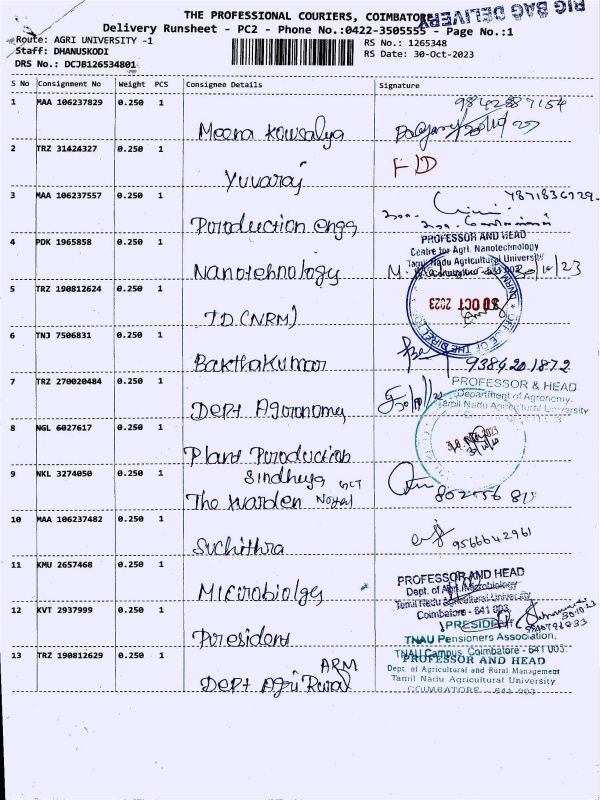 THE PROFESSIONAL COURIERS, COIMBATORE
BIG BAG DELIVERY
Delivery Runsheet - PC2 - Phone No.:0422-3505555 - Page No.:1
Route: AGRI UNIVERSITY -1
RS No.: 1265348
Staff: DHANUSKODI
RS Date: 30-Oct-2023
DRS No.: DCJB126534801
S No Consignment No Weight PCS Consignee Details Signature
1 MAA 106237829 0.250 1
Meena Kowsalya
2 TRZ 31424327 0.250 1
Yuvaraj
3 MAA 106237557 0.250 1
Poroduction engg
PROFESSOR AND HEAD
4 PDK 1965858 0.250 1
Centre for Agri. Nanotechnology
Tamil Nadu Agricultural University
Nanotehnology
5 TRZ 190812624 0.250 1
30 OCT 2023
T.D.(NRM)
6 TNJ 7506831 0.250 1
Bakthakumar 9384201872
7 TRZ 270020484 0.250 1
PROFESSOR & HEAD
Department of Agronomy
Tamil Nadu Agricultural University
Dept Agoronomy
8 NGL 6027617 0.250 1
Plant Poroduction
9 NKL 3274050 0.250 1
Sindhuya
The Warden
10 MAA 106237482 0.250 1
9566642961
Suchithra
11 KMU 2657468 0.250 1
PROFESSOR AND HEAD
Dept. of Agri. Microbiology
Tamil Nadu Agricultural University
Coimbatore - 641 003
Microbiolgy
12 KVT 2937999 0.250 1
PRESIDENT
TNAU Pensioners Association,
President
TNAU Campus, Coimbatore - 641 003.
13 TRZ 190812629 0.250 1
PROFESSOR AND HEAD
Dept. of Agricultural and Rural Management
ARM
Tamil Nadu Agricultural University
Dept Agri Rural
COIMBATORE - 641 003